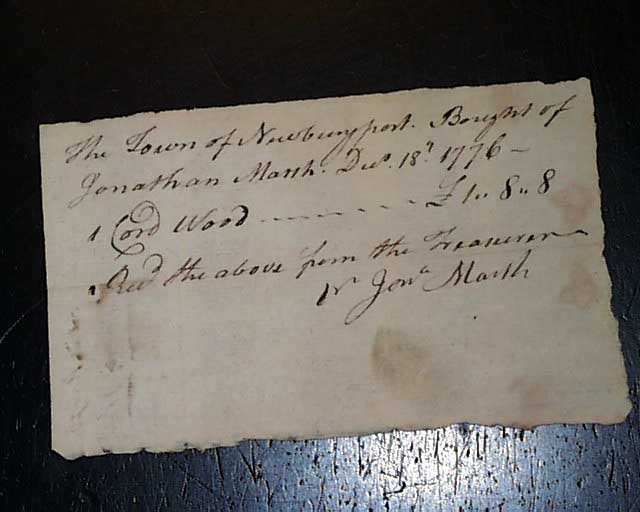 The Town of Newburyport. Bought of
Jonathan Marsh. Decr. 18th 1776 —
1 Cord Wood - - - - - - - £1.. 8.. 8
Recd the above from the Treasurer
Pr Jona Marsh